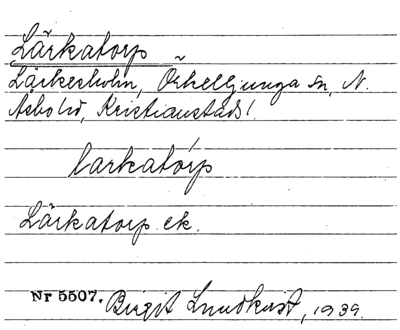 Lärkatorp
Lärkesholm, Örkelljunga sn, N.
Åsbo hd, Kristianstads l.
larkatórp
Lärkatorp ek.
Nr 5507. Birgit Lundkvist, 1939.